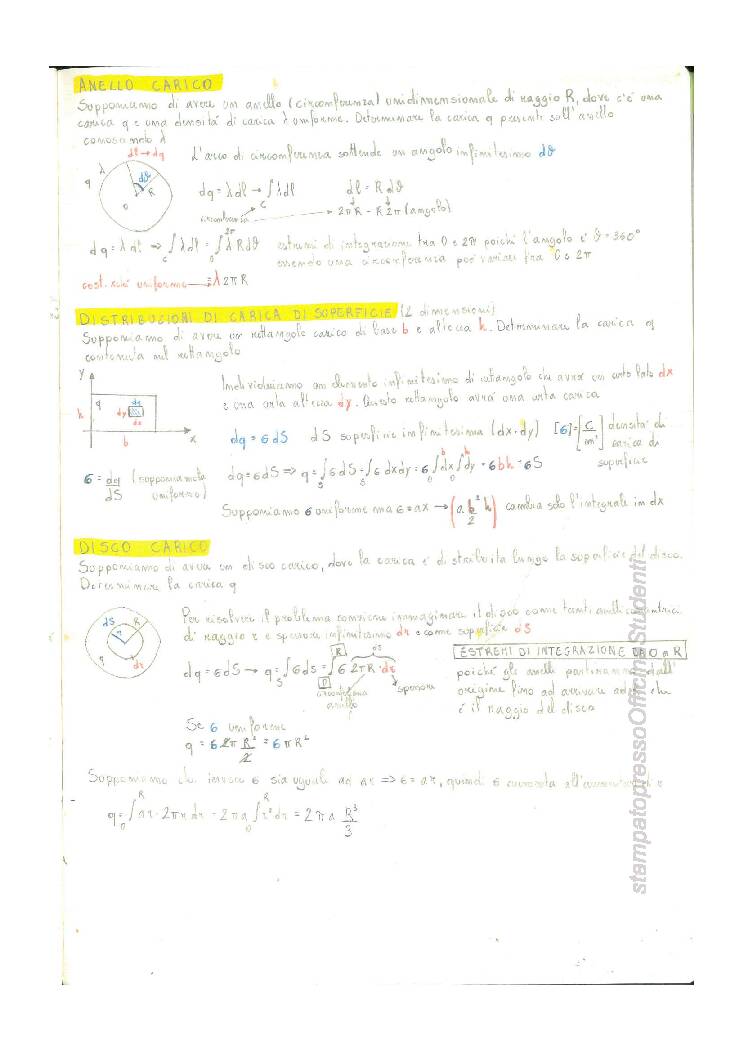 ANELLO CARICO
Supponiamo di avere un anello (circonferenza) unidimensionale di raggio R, dove c'è una
carica q e una densità di carica λ uniforme. Determinare la carica q presente sull'anello
conoscendo λ
dl → dq
λ
q
dϑ
R
0
L'arco di circonferenza sottende un angolo infinitesimo dϑ
dq = λdl → ∫λdl dl = R dϑ
C
circonferenza 2πR - R 2π (angolo)
dq = λ dl ⇒ ∫λdl = ∫λ R dϑ estremi di integrazione tra 0 e 2π poiché l'angolo è ϑ = 360°
essendo una circonferenza può variare fra 0 e 2π
cost. uniforme = λ2πR
DISTRIBUZIONI DI CARICA DI SUPERFICIE (2 dimensioni)
Supponiamo di avere un rettangolo carico di base b e altezza h. Determinare la carica q
contenuta nel rettangolo
y
q
dq
dy
dx
h
b
x
Individuiamo un elemento infinitesimo di rettangolo che avrà un certo lato dx
e una certa altezza dy. Questo rettangolo avrà una certa carica
dq = σdS dS superficie infinitesima (dx·dy) [σ]=[C/m²] densità di
carica di
superficie
σ = dq/dS (supponiamola
uniforme)
dq = σdS ⇒ q = ∫σdS = ∫σ dxdy = σ∫dx∫dy = σbh = σS
Supponiamo σ uniforme ma σ = ax → (a b²/2 h) cambia solo l'integrale in dx
DISCO CARICO
Supponiamo di avere un disco carico, dove la carica è distribuita lungo la superficie del disco.
Determinare la carica q
dS
R
r
q
dr
Per risolvere il problema conviene immaginare il disco come tanti anelli concentrici
di raggio r e spessore infinitesimo dr e come superficie dS
ESTREMI DI INTEGRAZIONE DA 0 a R
dq = σdS → q = ∫σdS = ∫σ 2πR·dr
dS
R
0
S
circonferenza
anello
spessore
poiché gli anelli partiranno dall'
origine fino ad arrivare ad R che
è il raggio del disco
Se σ uniforme
q = σ2π R²/2 = σπR²
Supponiamo che invece σ sia uguale ad ar => σ = ar, quindi σ aumenta all'aumentare di r
q = ∫ar·2πr dr = 2πa∫r²dr = 2πa R³/3
stampatopressoOfficineStudenti